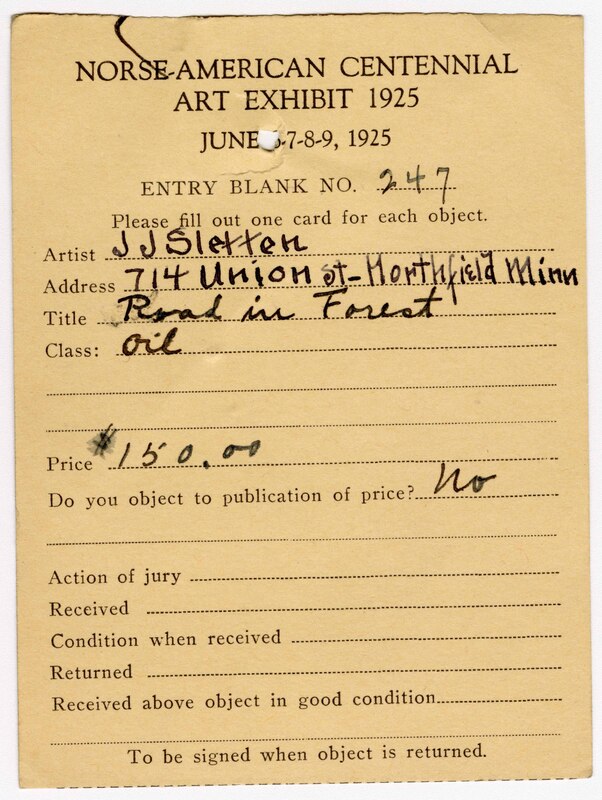 NORSE-AMERICAN CENTENNIAL
ART EXHIBIT 1925
JUNE 6-7-8-9, 1925
ENTRY BLANK NO. 247
Please fill out one card for each object.
Artist J J Sletten
Address 714 Union st - Northfield Minn
Title Road in Forest
Class: Oil
Price $150.00
Do you object to publication of price? No
Action of jury
Received
Condition when received
Returned
Received above object in good condition
To be signed when object is returned.